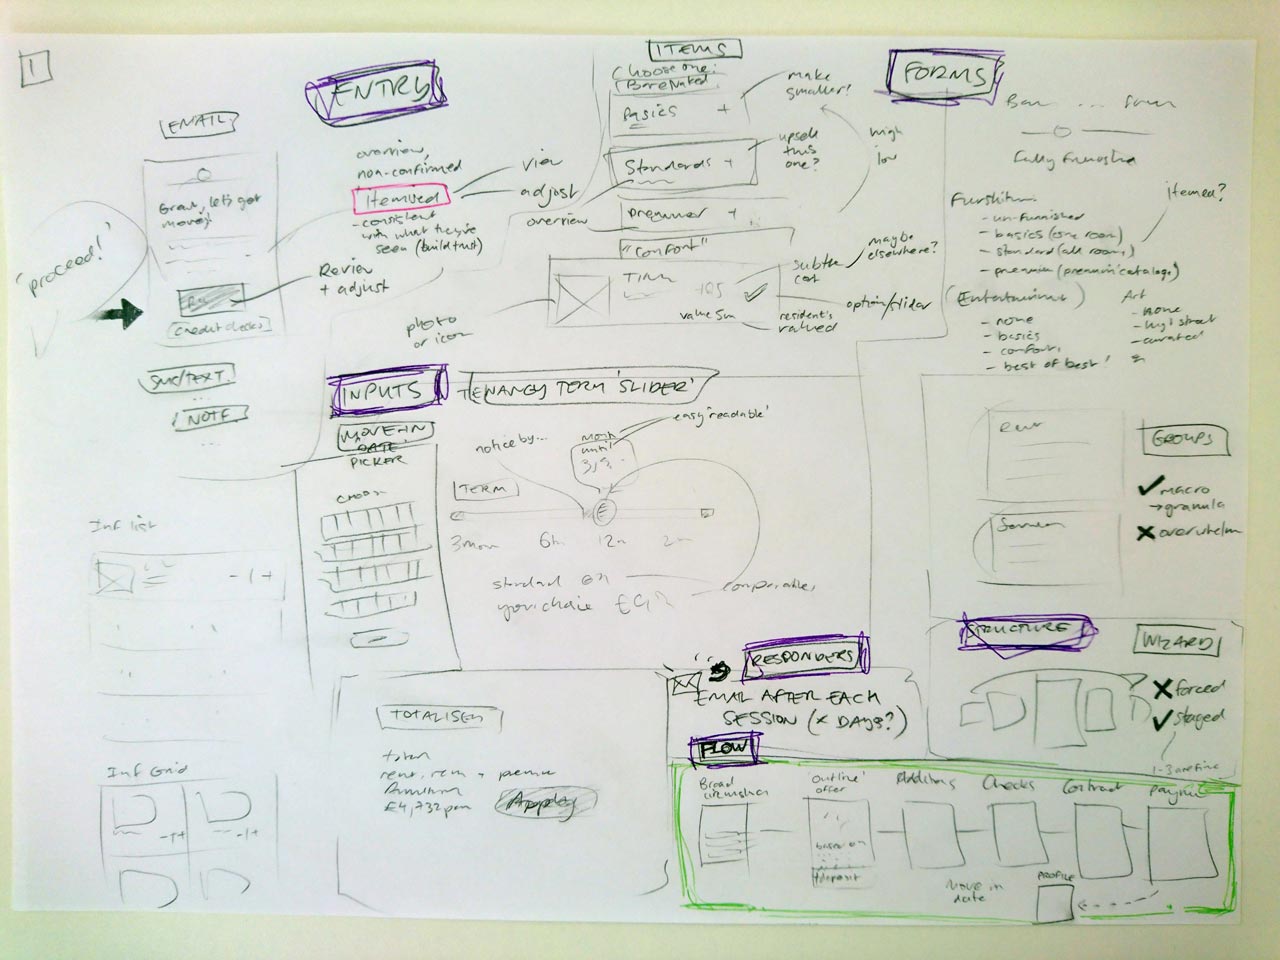 1
ENTRY
EMAIL
let's get
moving!
'proceed!'
Credit checks
SMS/TEXT.
...
NOTE
...
overview,
non-confirmed
Itemised
- consistent
with what they've
seen (build trust)
view
adjust
Review
+ adjust
ITEMS
Choose one:
Bare Naked
Basics +
Standards +
Premium +
overview
make
smaller?
upsell
this
one?
high
low
"Comfort"
subtle
cost
maybe
elsewhere?
value 5m
resident's
valued
option/slider
photo
or icon
FORMS
Fully Furnished
Furniture
- un-furnished
- basics (one room)
- standard (all rooms)
- premium (premium catalogue)
itemed?
(Entertainment)
- none
- basics
- comfort,
- best of best!
Art
- none
- high street
- curated
INPUTS
TENANCY TERM 'SLIDER'
MOVE-IN
DATE
PICKER
CHOOSE
notice by...
until
easy 'readable'
TERM
3mon 6m 12m
standard
your choice
comparables
GROUPS
macro
→ granular
overwhelm
Inf list
- 1 +
Inf Grid
- 1 +
- 1 +
TOTALISER
total
rent, rem + premium
furniture
£4,732pm
Apply
RESPONDERS
EMAIL AFTER EACH
SESSION (X DAYS?)
STRUCTURE
WIZARD
forced
staged
1-3 are fine
FLOW
Broad
'outline'
offer
based on
+deposit
Additions
Checks
Contract
Payment
Move in
date
PROFILE